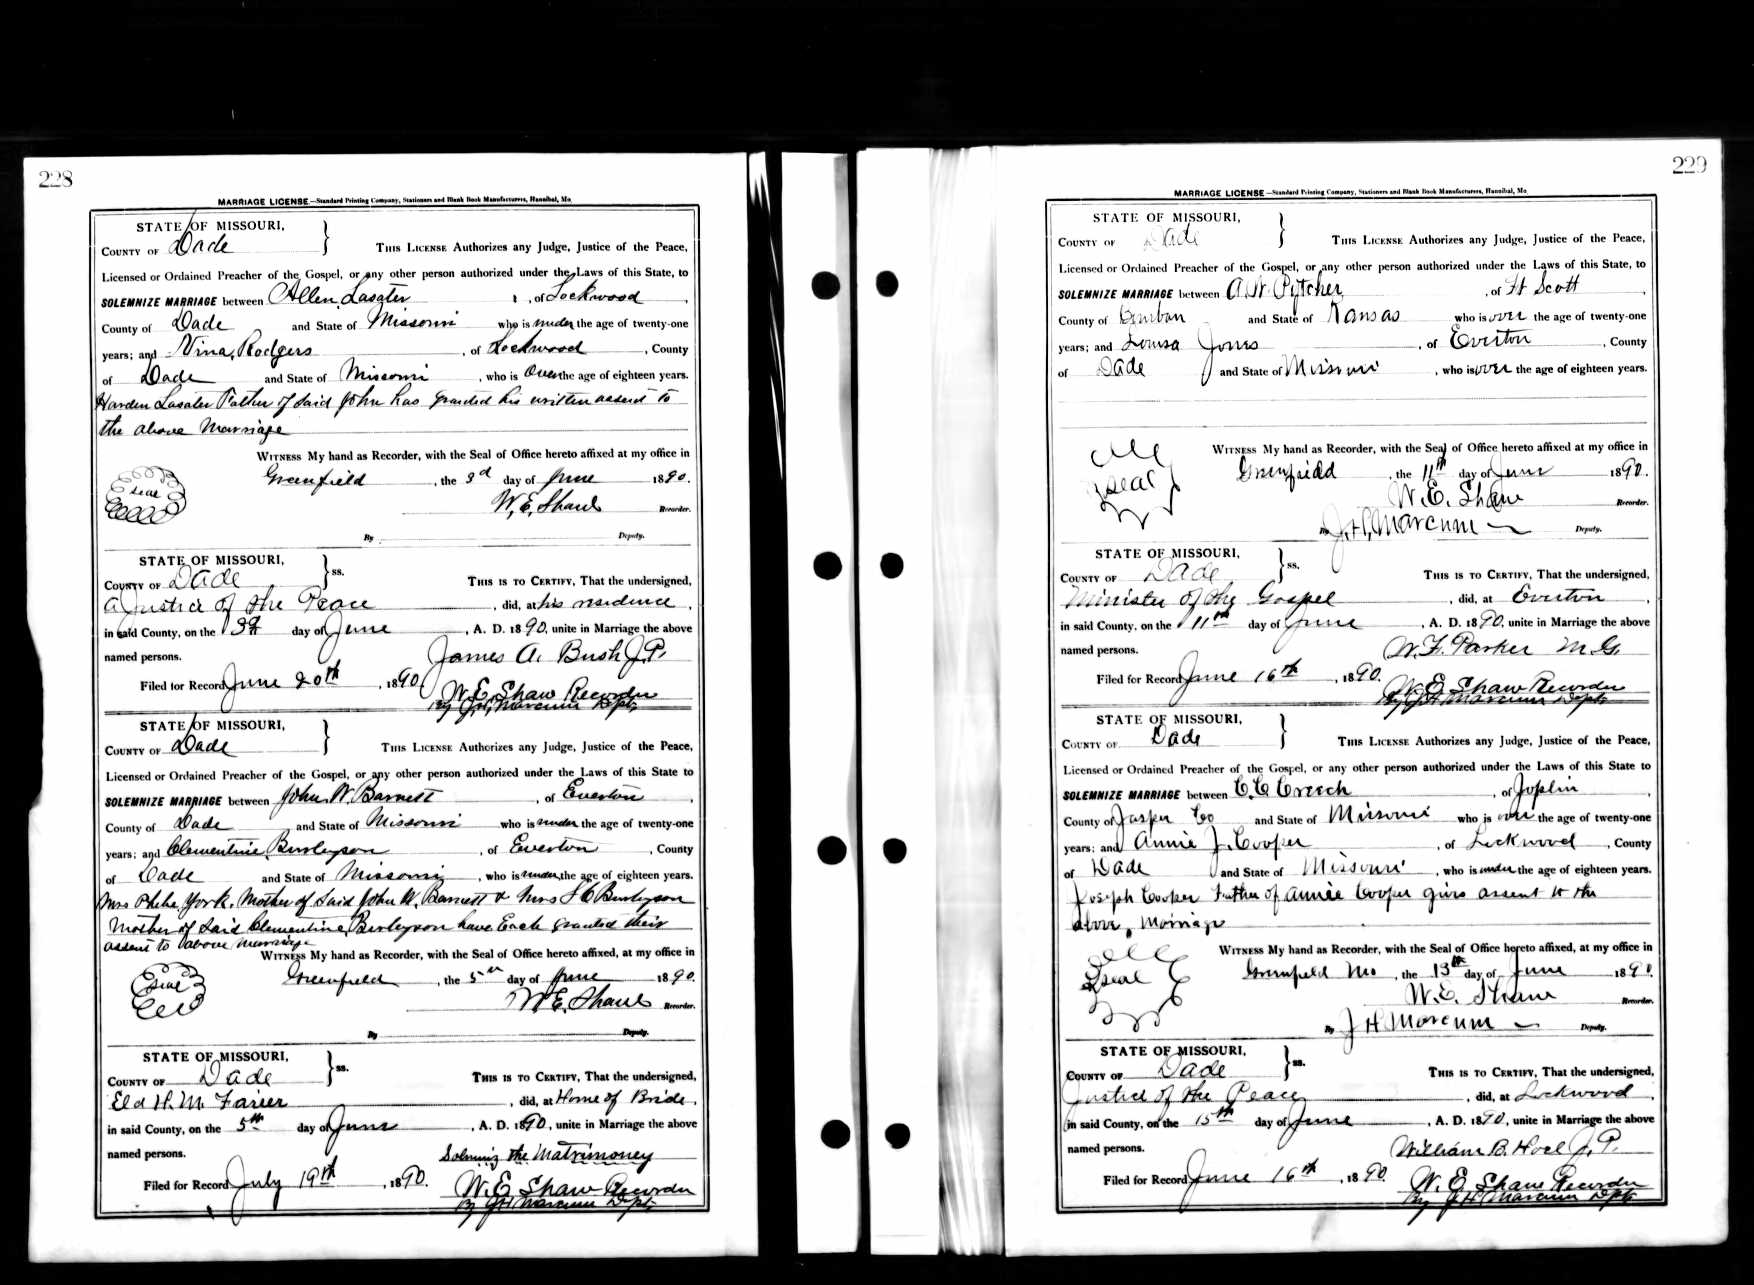 228
MARRIAGE LICENSE.—Standard Printing Company, Stationers and Blank Book Manufacturers, Hannibal, Mo
STATE OF MISSOURI,
COUNTY OF Dade
THIS LICENSE Authorizes any Judge, Justice of the Peace,
Licensed or Ordained Preacher of the Gospel, or any other person authorized under the Laws of this State, to
SOLEMNIZE MARRIAGE between Allen Lasater, of Lockwood,
County of Dade and State of Missouri who is under the age of twenty-one
years; and Nina Rodgers, of Lockwood, County
of Dade and State of Missouri, who is Over the age of eighteen years.
Harden Lasater Father of Said John has granted his written assent to
the above Marriage
WITNESS My hand as Recorder, with the Seal of Office hereto affixed at my office in
Seal
Greenfield, the 3d day of June 1890.
W. E. Shaw Recorder.
By Deputy.
STATE OF MISSOURI,
COUNTY OF Dade ss.
THIS IS TO CERTIFY, That the undersigned,
a Justice of the Peace, did, at his residence,
in said County, on the 3d day of June, A. D. 1890, unite in Marriage the above
named persons. James A. Bush J.P.
Filed for Record June 20th, 1890. W. E. Shaw Recorder
By J.H. Marcum Dept.
STATE OF MISSOURI,
COUNTY OF Dade
THIS LICENSE Authorizes any Judge, Justice of the Peace,
Licensed or Ordained Preacher of the Gospel, or any other person authorized under the Laws of this State to
SOLEMNIZE MARRIAGE between John W. Barnett, of Everton,
County of Dade and State of Missouri who is under the age of twenty-one
years; and Clementine Burleyson, of Everton, County
of Dade and State of Missouri, who is under the age of eighteen years.
Mrs Pheba York. Mother of Said John W. Barnett & Mrs S C Burleyson
Mother of Said Clementine Burleyson have Each granted their
assent to above marriage
WITNESS My hand as Recorder, with the Seal of Office hereto affixed, at my office in
Seal
Greenfield, the 5th day of June 1890.
W. E. Shaw Recorder.
By Deputy.
STATE OF MISSOURI,
COUNTY OF Dade ss.
THIS IS TO CERTIFY, That the undersigned,
Eld H. M. Farier, did, at Home of Bride,
in said County, on the 5th day of June, A. D. 1890, unite in Marriage the above
named persons. the Matrimoney
Filed for Record July 19th, 1890. W. E. Shaw Recorder
By J.H. Marcum Dept.
229
MARRIAGE LICENSE—Standard Printing Company, Stationers and Blank Book Manufacturers, Hannibal, Mo
STATE OF MISSOURI,
COUNTY OF Dade
THIS LICENSE Authorizes any Judge, Justice of the Peace,
Licensed or Ordained Preacher of the Gospel, or any other person authorized under the Laws of this State, to
SOLEMNIZE MARRIAGE between A. W. Pitcher, of Ft Scott,
County of and State of Kansas who is over the age of twenty-one
years; and Louisa Jones, of Everton, County
of Dade and State of Missouri, who is over the age of eighteen years.
WITNESS My hand as Recorder, with the Seal of Office hereto affixed at my office in
Seal
Greenfield, the 11th day of June 1890.
W. E. Shaw Recorder.
By J. H. Marcum Deputy.
STATE OF MISSOURI,
COUNTY OF Dade ss.
THIS IS TO CERTIFY, That the undersigned,
Minister of the Gospel, did, at Everton,
in said County, on the 11th day of June, A. D. 1890, unite in Marriage the above
named persons. W. F. Parker M.G.
Filed for Record June 16th, 1890. W. E. Shaw Recorder
By J H Marcum Dept
STATE OF MISSOURI,
COUNTY OF Dade
THIS LICENSE Authorizes any Judge, Justice of the Peace,
Licensed or Ordained Preacher of the Gospel, or any other person authorized under the Laws of this State to
SOLEMNIZE MARRIAGE between C. C. Creech, of Joplin,
County of Jasper Co and State of Missouri who is over the age of twenty-one
years; and Annie J. Cooper, of Lockwood, County
of Dade and State of Missouri, who is under the age of eighteen years.
Joseph Cooper Father of Annie Cooper gives assent to the
above, Marriage
WITNESS My hand as Recorder, with the Seal of Office hereto affixed, at my office in
Seal
Greenfield Mo, the 13th day of June 1890.
W. E. Shaw Recorder.
By J H Marcum Deputy.
STATE OF MISSOURI,
COUNTY OF Dade ss.
THIS IS TO CERTIFY, That the undersigned,
Justice of the Peace, did, at Lockwood,
in said County, on the 15th day of June, A. D. 1890, unite in Marriage the above
named persons. William B. Hoel J. P.
Filed for Record June 16th, 1890 W. E. Shaw Recorder
By J H Marcum Dept